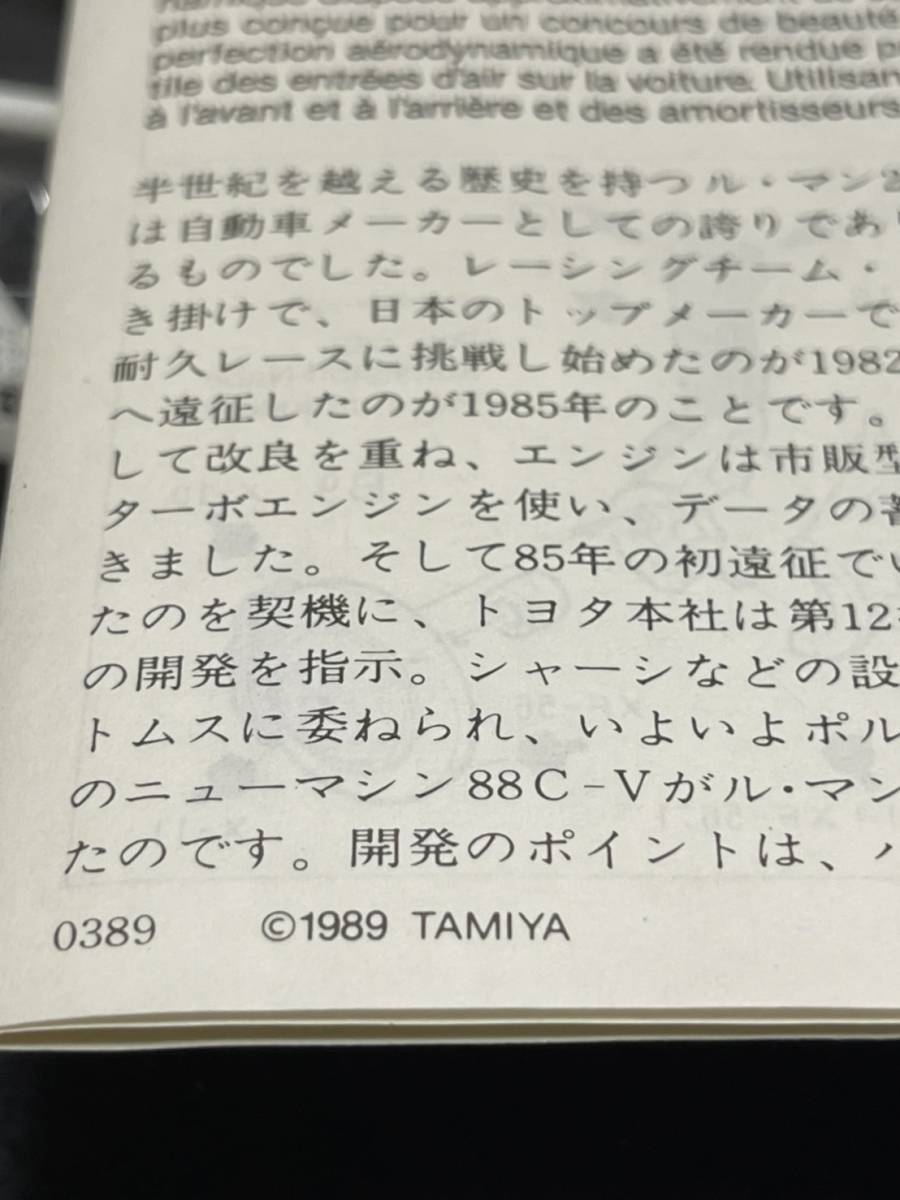 plus conçue pour un concours de beauté
perfection aérodynamique a été rendue
file des entrées d'air sur la voiture. Utilisan
à l'avant et à l'arrière et des amortisseurs
半世紀を越える歴史を持つル・マン2
は自動車メーカーとしての誇りであり
るものでした。レーシングチーム・
き掛けで、日本のトップメーカーで
耐久レースに挑戦し始めたのが1982
へ遠征したのが1985年のことです。
して改良を重ね、エンジンは市販型
ターボエンジンを使い、データの蓄
きました。そして85年の初遠征でい
たのを契機に、トヨタ本社は第12
の開発を指示。シャーシなどの設
トムスに委ねられ、いよいよポル
のニューマシン88C-Vがル・マン
たのです。開発のポイントは、
0389 ©1989 TAMIYA